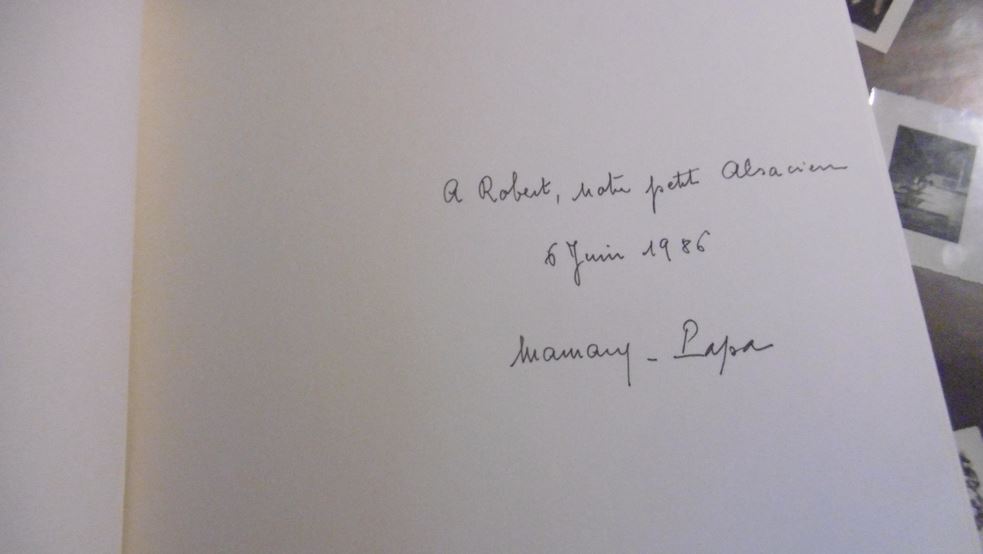 A Robert, notre petit Alsacien
6 Juin 1986
Maman - Papa